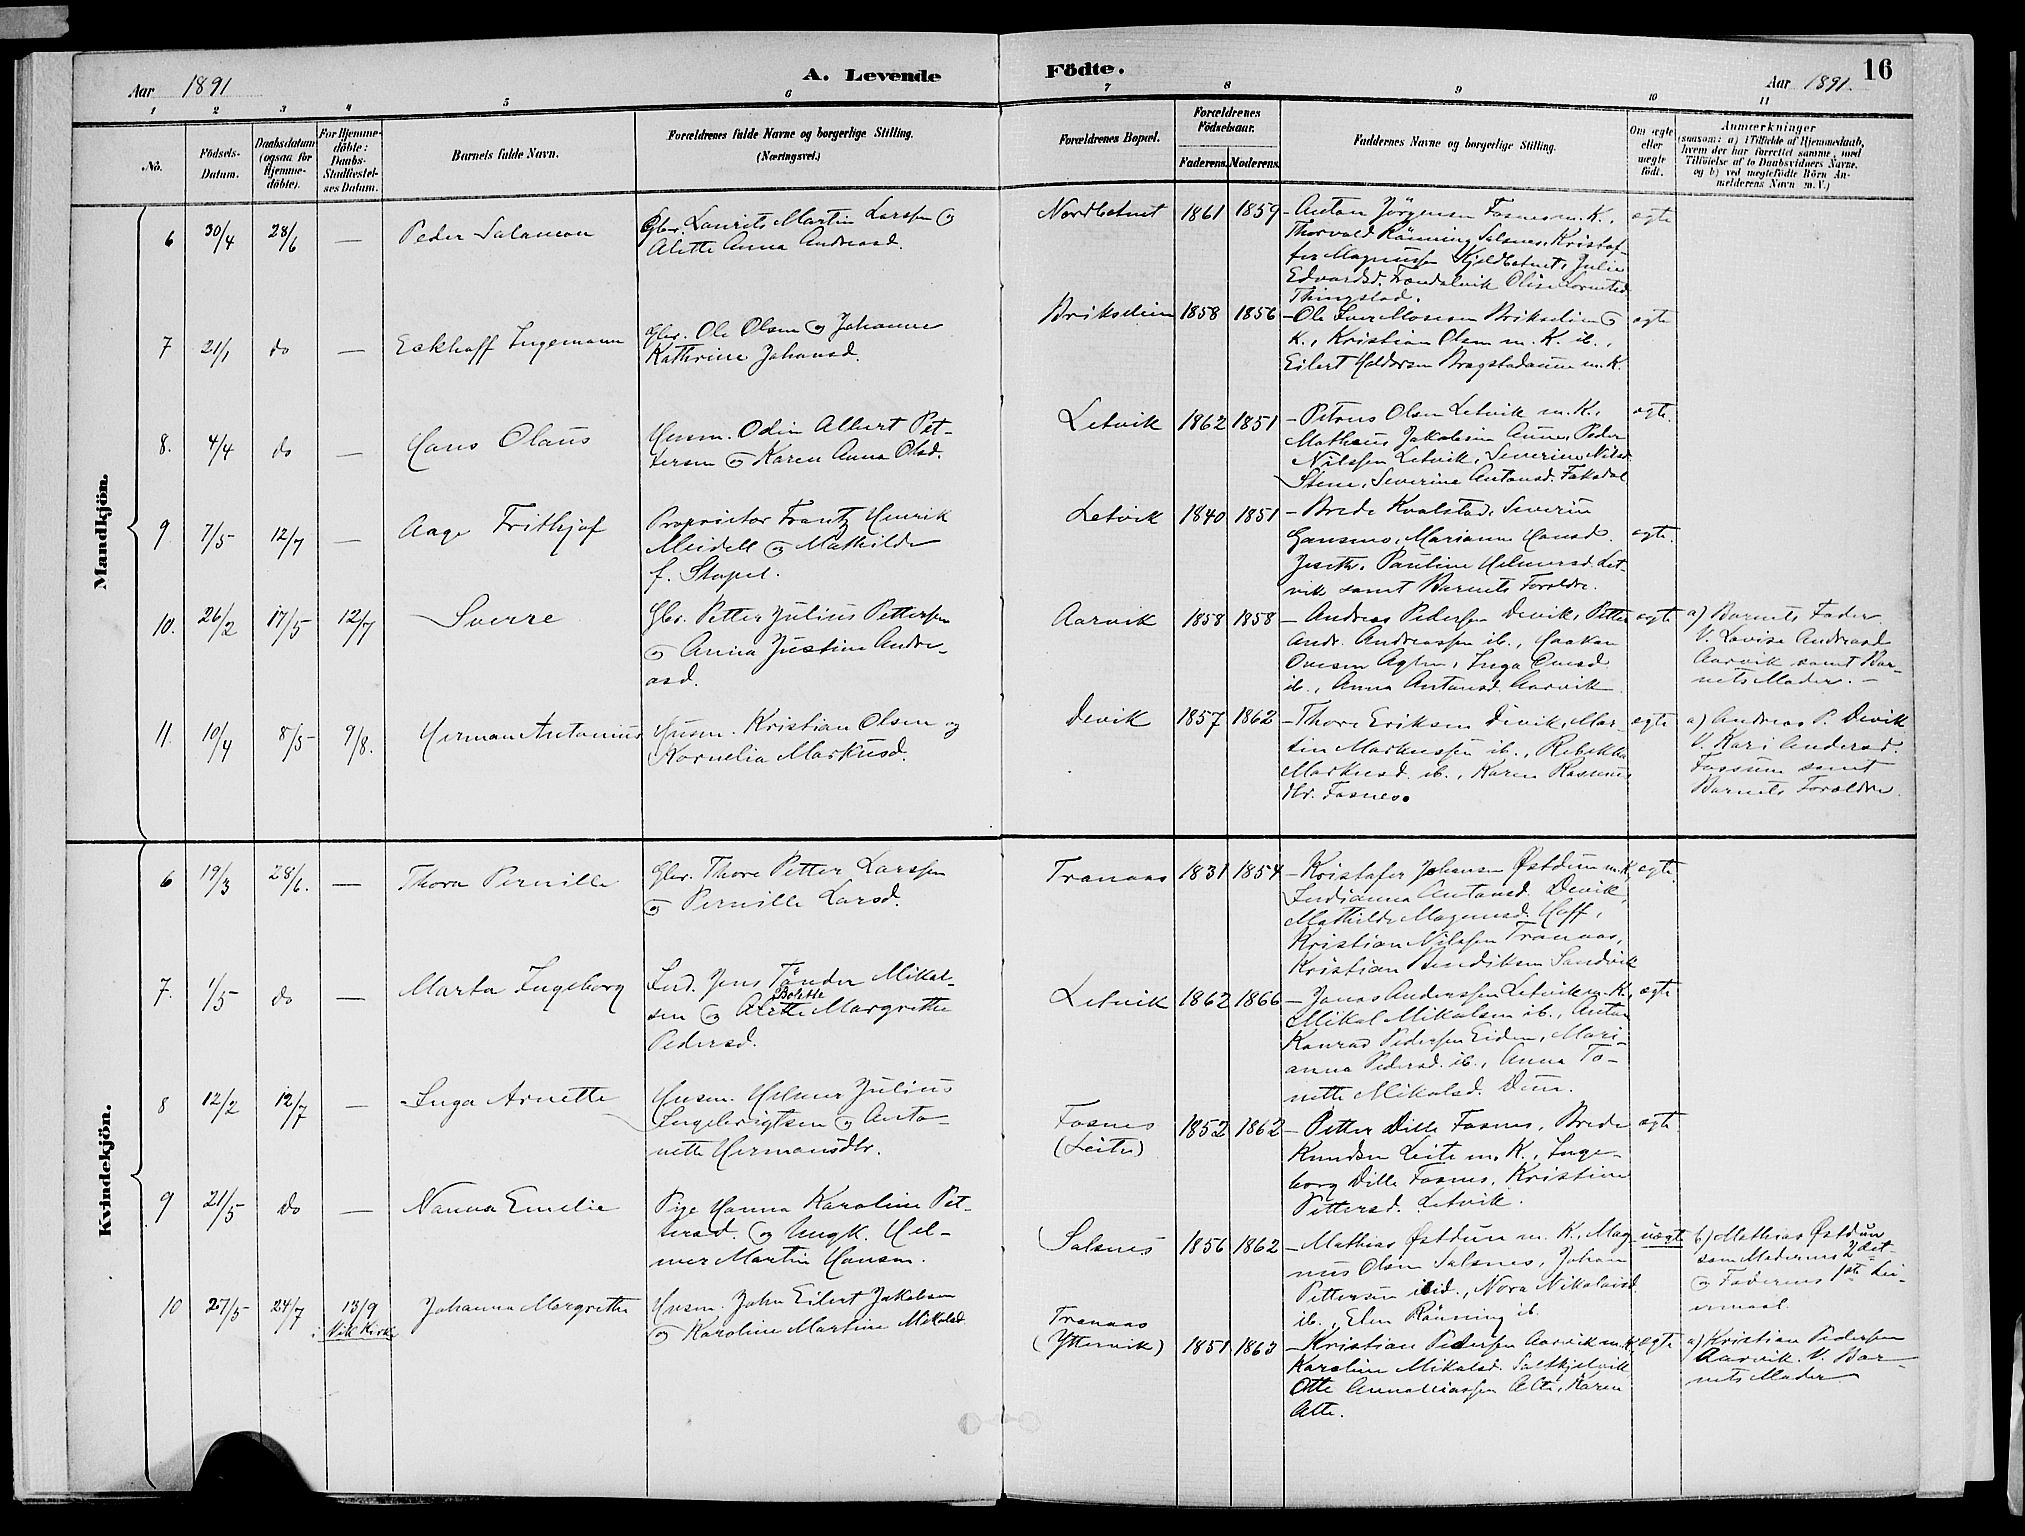 Aar 1891
A. Levende
Födte.
Aar 1891.
16
1 2 3 4 5 6 7 8 9 10 11
No.
Födsels-
Datum.
Daabsdatum
(ogsaa for
Hjemme-
döbte).
For Hjemme-
döbte:
Daabs-
Stadfæstel-
ses Datum.
Barnets fulde Navn.
Forældrenes fulde Navne og borgerlige Stilling.
(Næringsvei.)
Forældrenes Bopæl.
Forældrenes
Födselsaar.
Faderens. Moderens.
Faddernes Navne og borgerlige Stilling.
Om ægte
eller
uægte
födt.
Anmærkninger
(saasom: a) i Tilfælde af Hjemmedaab,
hvem der har forrettet samme, med
Tilföielse af to Daabsvidners Navne,
og b) ved uegtefödte Börn An-
melderens Navn m. V.)
Mandkjön.
6 30/4 28/6 — Peder Salamon
Gbr. Laurits Martin Larssen og
Alette Anna Andreasd.
Nordbotnet 1861 1859
– Anton Jörgensen Fosnes m. K.,
Thorvald Rönning Salsnes, Kristof-
fer Magnussen Kjeldbotnet, Julie
Edvardsd. Frondalvik Olise Lorntsd
Thingstad.
egte
7 21/1 do — Eckhoff Ingemann
Gbr. Ole Olsen og Johanne
Kathrine Johansd.
Brikseim 1858 1856
– Ole Iver Mosesen Brikseim og
K., Kristian Olsen m. K. ib.,
Eilert Haldorsen Bragstadaune m. K.
egte
8. 4/4 do — Hans Olaus
Husm. Odin Albert Pet-
tersen og Karen Anna Olsd.
Letvik 1862 1851
– Petrus Olsen Letvik m. K.,
Mathæus Jakobsen Aunes, Peder
Nilssen Letvik, Severine Nilsd.
Stene, Severine Antonsd. Faksdal
egte.
9. 7/5 12/7 — Aage Frithjof
Proprietær Frantz Henrik
Meidell og Mathilde
f. Stapel.
Letvik 1840 1851
– Brede Kvalstad, Severin
Gansmo, Marianne Hansd.
Jseth, Pauline Helmersd. Let-
vik samt Barnets Forældre.
egte.
10. 26/2 17/5 12/7 Sverre
Gbr. Petter Julius Pettersen
og Anna Justine Andre-
asd.
Aarvik 1858 1858
– Andreas Pedersen Devik, Petter
Andr. Andreassen ib., Haakon
Ounsen Aglen, Inga Ounsd.
ib., Anna Antonsd. Aarvik
egte
a) Barnets Fader
V. Lovise Andreasd
Aarvik samt Bar-
nets Moder. –
11. 10/4 8/5 9/8. Herman Antonius
Husm. Kristian Olsen og
Kornelia Markusd.
Devik 1857 1862
– Thore Eriksen Devik, Mar-
tin Markussen ib., Rebekka
Markusd. ib., Karen Rasmus
dtr. Fosnes.
egte
a) Andreas P. Devik
V. Kari Andersd.
Fossum samt
Barnets Forældre.
Kvindekjön.
6 19/3 28/6. — Thora Pernille
Gbr. Thore Petter Larssen
og Pernille Larsd.
Tranaas 1831 1854
– Kristofer Johansen Østduun m. K.
Indianna Antonsd. Devik,
Mathilde Magnusd. Hoff,
Kristian Nilssen Tranaas,
Kristian Bendiksen Sandvik
egte.
7. 1/5 do — Marta Ingeborg
Ind. Jens Tönder Mikal-
Bolette
sen og Alette Margrethe
Pedersd.
Letvik 1862 1866
– Jonas Anderssen Letvik m. K.,
Mikal Mikalsen ib., Anton
Konrad Pedersen Eiden, Mari-
anna Pedersd. ib., Anna To-
nette Mikalsd. Duun.
egte
8 12/2 12/7 — Inga Arnette
Husm. Helmer Julius
Ingebrigtsen og Anto-
nette Hermansdtr.
Fosnes
(Leite) 1852 1862
– Petter Dille Fosnes, Brede
Knudsen Leite m. K., Inge-
borg Dille Fosnes, Kristine
Pettersd. Letvik.
egte
9 21/5 do — Nanna Emelie
Pige Hanna Karoline Pet-
tersd. og Ungk. Hel-
mer Martin Hansen.
Salsnes 1856 1862
– Mathias Østduun m. K., Mag-
nus Olsen Salsnes, Johan
Pettersen ibid., Nora Nikolaisd.
ib., Elen Rönning ib.
uegte
b) Mathias Østduun
som Moderens 2det
og Faderens 1ste Lei-
ermaal.
10 27/5 24/7 13/9
i Vik Kirke
Johanna Margrethe
Husm. John Eilert Jakobsen
og Karoline Martine Mikalsd.
Tranaas
(Yttervik) 1851 1863
– Kristian Pedersen Aarvik m. K.,
Karoline Mikalsd. Saltkjelvik,
Otte Annaniassen Alte, Karen
Alte.
egte
a) Kristian Pedersen
Aarvik. V. Bar-
nets Moder